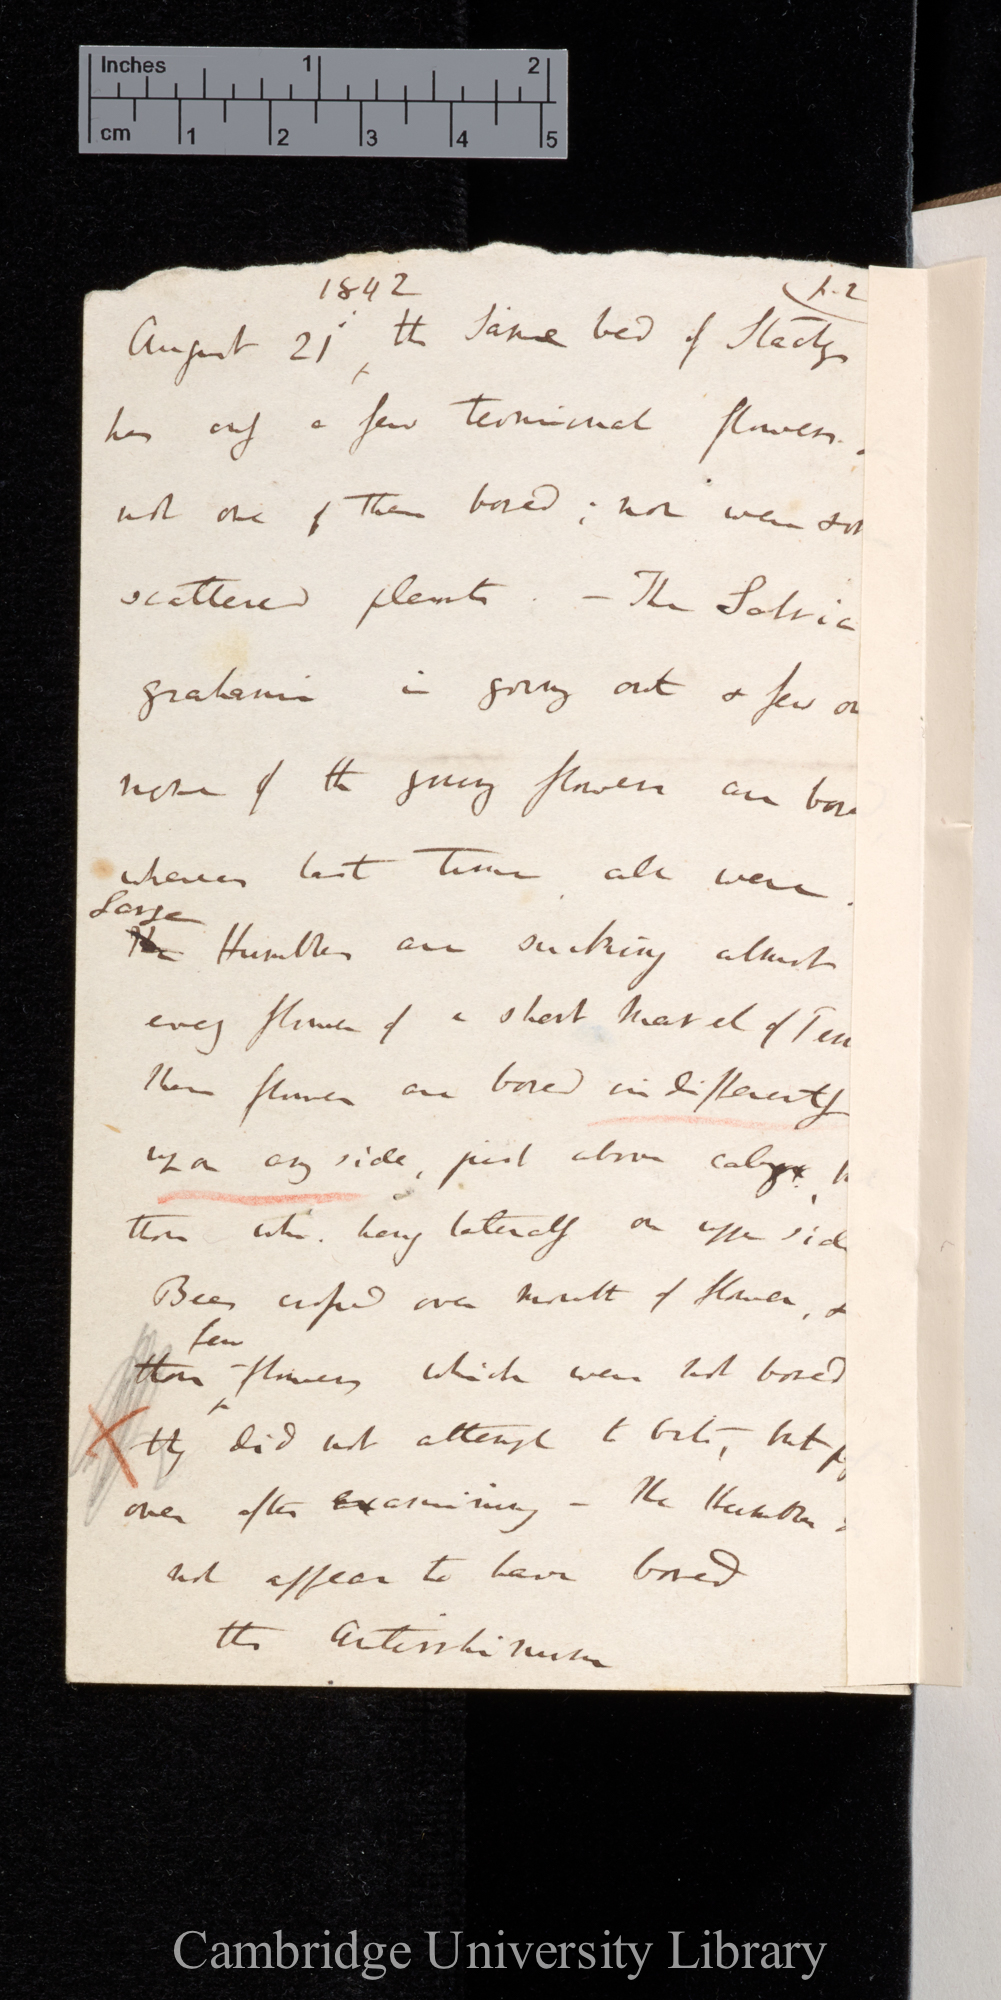 Inches 1 2
cm 1 2 3 4 5
1842
August 21st the same bed of Stachys
has only a few terminal flowers.
not one of them bored; nor were
scattered plants. — The Salvia
grahami is going out & few
none of the young flowers are
whereas last time all were.
Large
The Humbles are sucking almost
every flower of a short
these flowers are bored indifferently
upon any side, just above calyx,
those wh. hang laterally on upper
Bees crossed over mouth of flower, &
few
those flowers which were not bored
they did not attempt to bite, but
over after examining — The Humbles
not appear to have bored
the Antirrhinum
Cambridge University Library